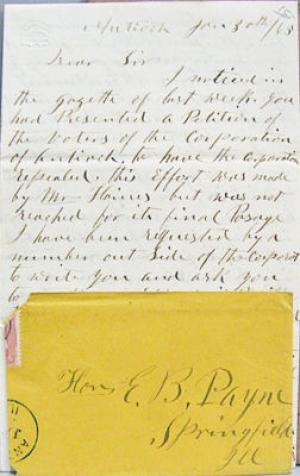 Antioch Jan 30th/65
Dear Sir
I noticed in
the gazette of last week you
had Presented a Petition of
the Voters of the Corporation
of Antioch to have the Corporation
repealed. this Effort was made
by Mr Haines but was not
reached for its final Pasage
I have been requested by a
number out side of the Corporat
to write you and ask you
to
Hon E. B. Payne
Springfield
Ill
AN